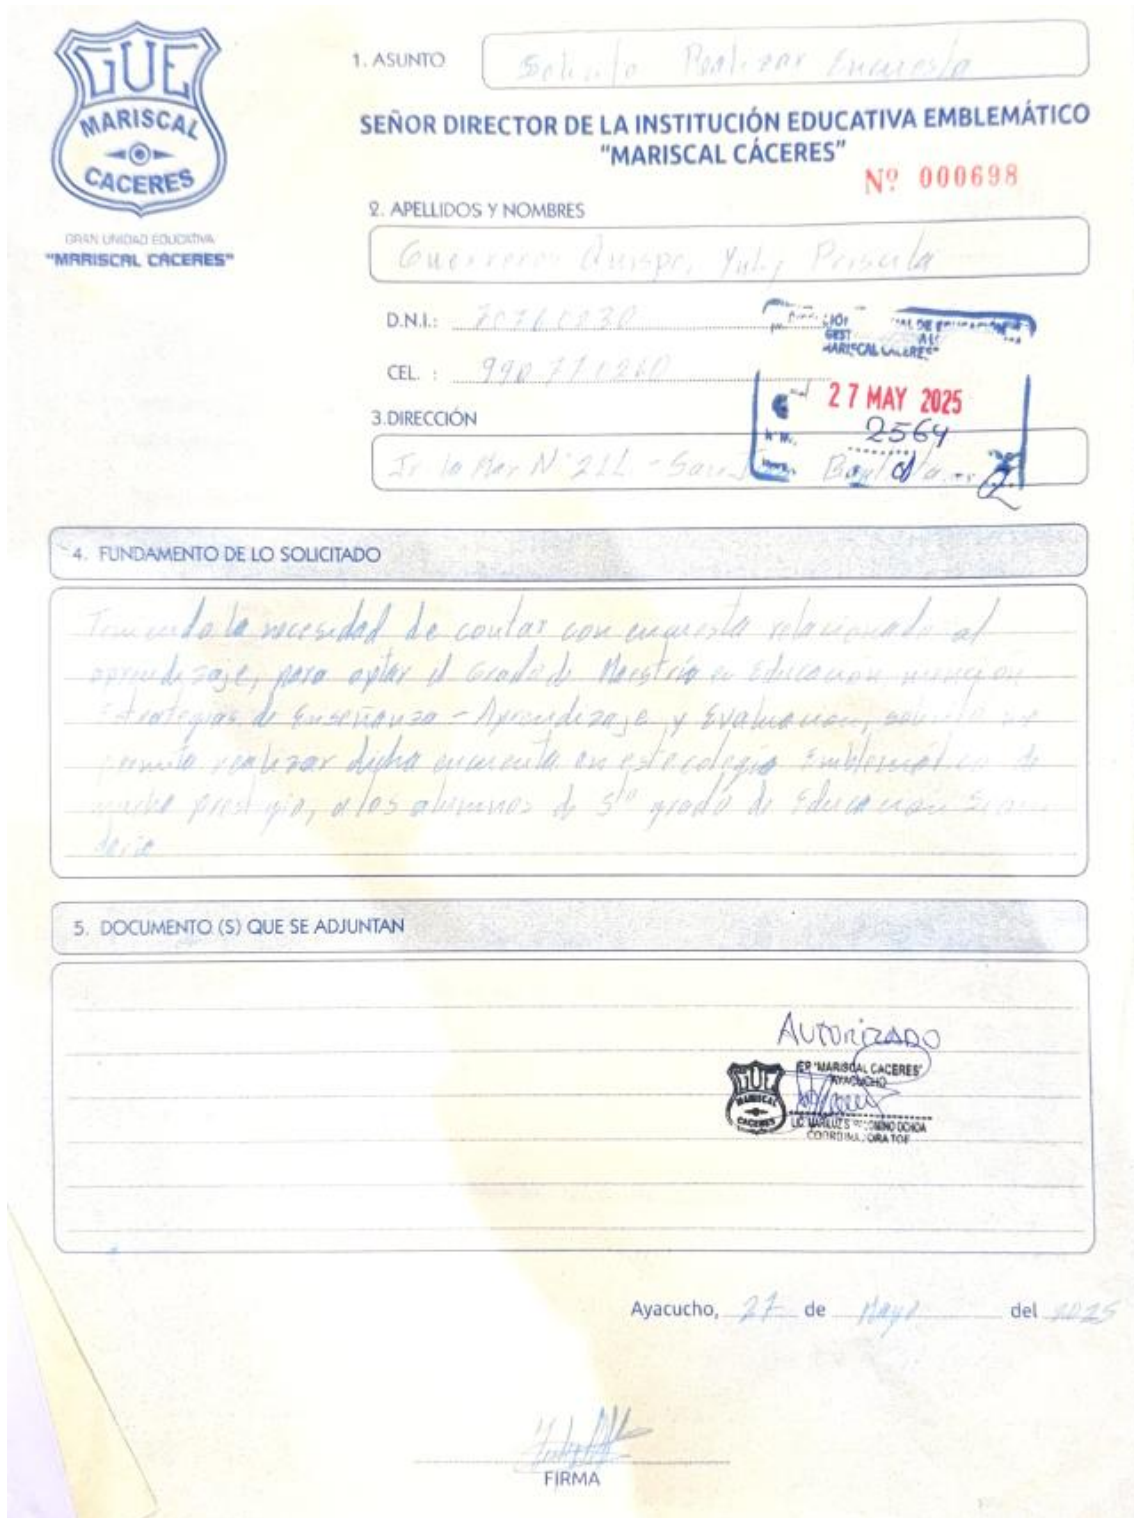 GUE
MARISCAL
CACERES
GRAN UNIDAD EDUCATIVA
"MARISCAL CACERES"
1. ASUNTO
Solicito Realizar Encuesta
SEÑOR DIRECTOR DE LA INSTITUCIÓN EDUCATIVA EMBLEMÁTICO
"MARISCAL CÁCERES"
Nº 000698
2. APELLIDOS Y NOMBRES
Guerreros Quispe, Yuly Priscila
D.N.I.:
CEL. :
MARISCAL CACERES"
27 MAY 2025
2564
3.DIRECCIÓN
Jr. la Mar N° 211 - San Bautista
4. FUNDAMENTO DE LO SOLICITADO
Teniendo la necesidad de contar con encuesta relacionado al
aprendizaje, para optar el Grado de Maestría en Educación, mención
Estrategias de Enseñanza - Aprendizaje y Evaluación, solicito me
permita realizar dicha encuesta en este colegio Emblemático de
mucho prestigio, a los alumnos de 5to grado de Educación Secun
daria
5. DOCUMENTO (S) QUE SE ADJUNTAN
AUTORIZADO
"MARISCAL CACERES"
AYACUCHO
GUE
MARISCAL
CACERES
LIC. MARILUZ S. OCHOA
COORDINADORA TOE
Ayacucho, 27 de Mayo del 2025
FIRMA